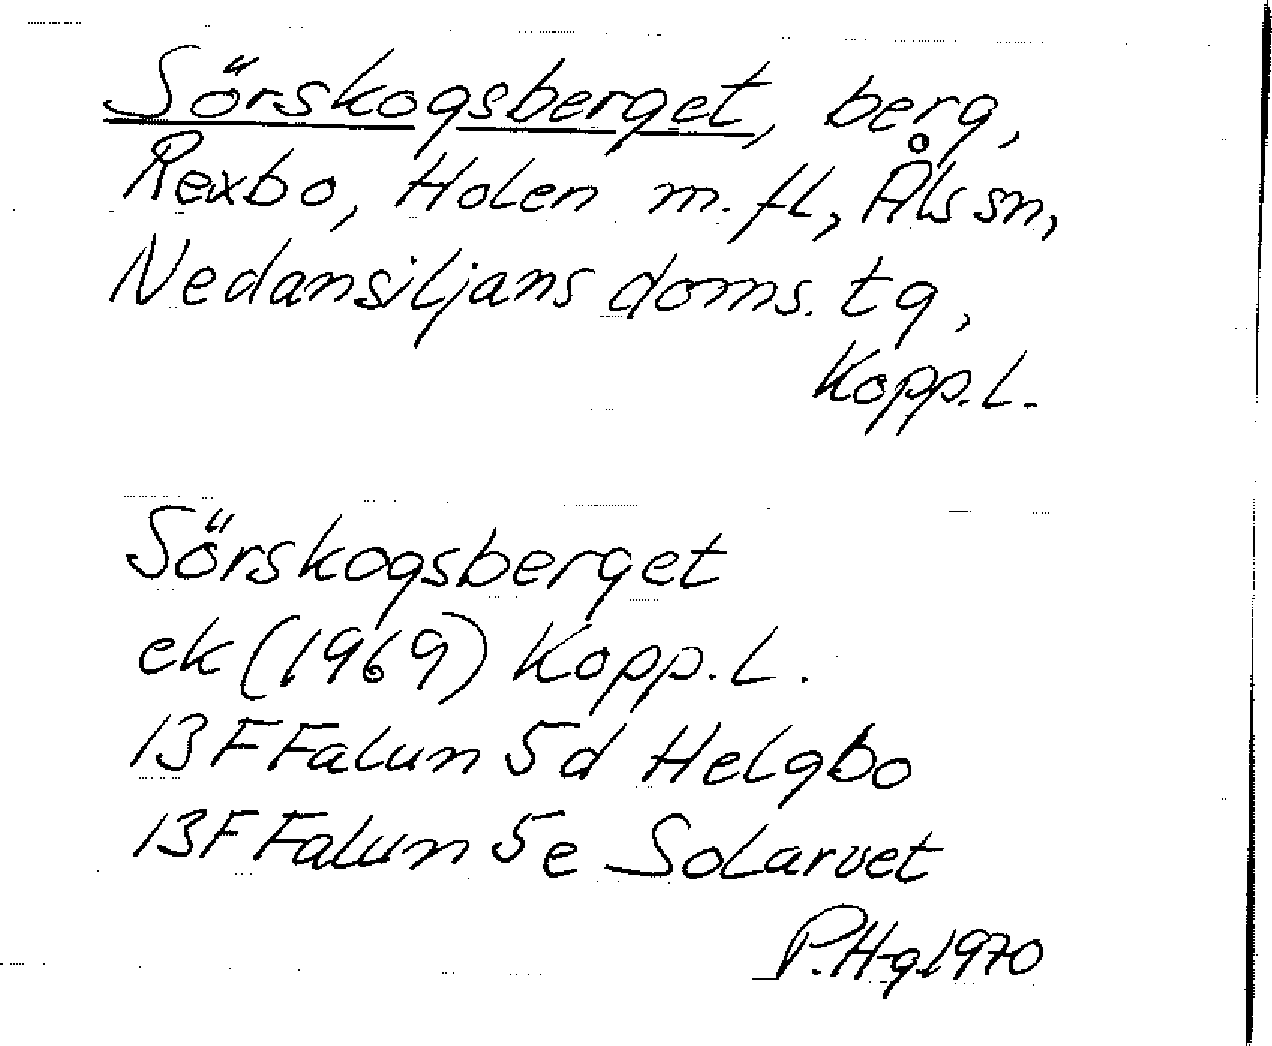 Sörskogsberget, berg,
Rexbo, Holen m.fl., Åls sn,
Nedansiljans doms. tg,
Kopp.l.
Sörskogsberget
ek (1969) Kopp.l.
13F Falun 5d Helgbo
13F Falun 5e Solarvet
P.Hg.1970